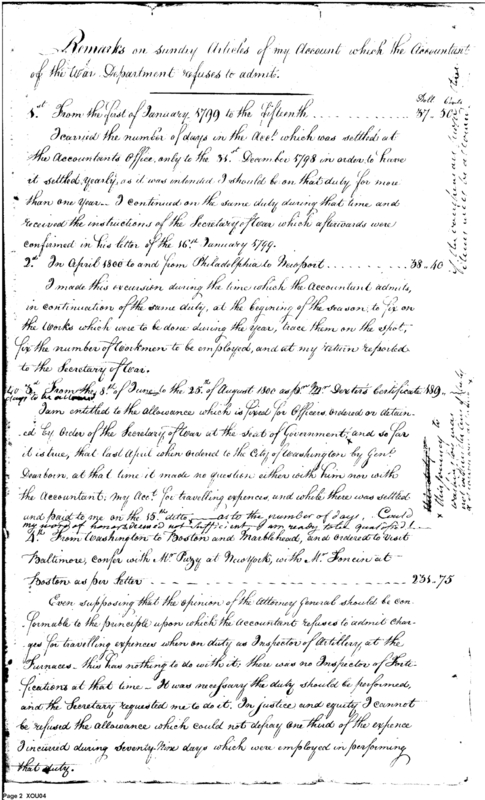 Remarks on sundry Articles of my Account which the Accountant
of the War Department refuses to admit.
Doll Cents
1st From the first of January 1799 to the Fifteenth ........ 37-50
I carried the number of days in the Acct. which was settled at
the Accountants Office, only to the 31st December 1798 in order to have
it settled yearly, as it was intended I should be on that duty for more
than one year - I continued on the same duty during that time and
received the instructions of the Secretary of War which afterwards were
confirmed in his letter of the 16th January 1799.
2d. In April 1800 to and from Philadelphia to Newport ........ 38-40
I made this excursion during the time which the Accountant admits,
in continuation of the same duty, at the begining of the season; to fix on
the Works which were to be done during the year, trace them on the spot,
fix the number of Workmen to be employed, and at my return reported
to the Secretary of War.
3d From the 8th of June to the 25th of August 1800 as pr. Mr. Dexter's Certificate 189-
days to be allowed
I am entitled to the Allowance which is fixed for Officers ordered or detain-
-ed by Order of the Secretary of War at the Seat of Government, and so far
it is true, that last April when ordered to the City of Washington by Genl
Dearborn, at that time it made no question either with him nor with
the Accountant. My Acct. for travelling expences, and while there was settled
and paid to me on the 15th ditto - as to the number of days, Could
my word of honor deemed not sufficient, I am ready to be qualified! -
4th From Washington to Boston and Marblehead, and ordered to visit
Baltimore, confer with Mr. Pusy at New York, with Mr. Foncin at
Boston as per Letter ........ 231-75
Even supposing that the opinion of the Attorney General should be con-
-formable to the principle upon which the Accountant refuses to admit char-
-ges for travelling expences when on duty as Inspector of Artillery, at the
Furnaces - this has nothing to do with it; there was no Inspector of Forti-
-fications at that time - It was necessary the duty should be performed,
and the Secretary requested me to do it. In justice and equity I cannot
be refused the allowance which could not defray one third of the expence
I incurred during Seventy Nine days which were employed in performing
that duty.
Page 2 XOU04